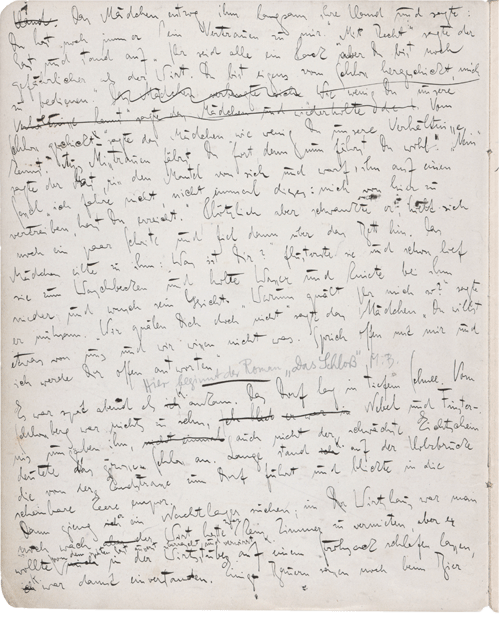 Kind. Das Mädchen entzog ihm langsam ihre Hand und sagte:
Du hast noch immer kein Vertrauen zu mir." „Mit Recht" sagte der
Gast und stand auf. „Ihr seid alle ein Pack aber Du bist noch
gefährlicher als der Wirt. Du bist eigens vom Schloss hergeschickt, mich
zu bedienen." „Wie wenig Du unsere
Verhältnisse kennst" sagte das Mädchen und „Vom
Schloss geschickt" sagte das Mädchen wie wenig Du unsere Verhältnisse
kennst. Aus Misstrauen fährst Du fort denn nun fährst Du wohl." „Nein"
sagte der Gast, riss den Mantel von sich und warf ihn auf einen
Sessel „ich fahre nicht, nicht einmal dieses: mich von hier zu
vertreiben, hast Du erreicht." Plötzlich aber schwankte er, hielt sich
noch ein paar Schritte und fiel dann über das Bett hin. Das
Mädchen eilte zu ihm: Was ist Dir? flüsterte sie und schon lief
sie zum Waschbecken und holte Wasser und kniete bei ihm
nieder und wusch sein Gesicht. „Warum quält Ihr mich so?" sagte
er mühsam. „Wir quälen Dich doch nicht" sagte das Mädchen „Du willst
etwas von uns und wir wissen nicht was. Sprich offen mit mir und
ich werde Dir offen antworten"
Hier beginnt der Roman „Das Schloß" M.B.
Es war spät abend als ich ankam. Das Dorf lag in tiefem Schnee. Vom
Schlossberg war nichts zu sehn, Nebel und Finster-
nis umgaben ihn, auch nicht der schwächste Lichtschein
deutete das grosse Schloss an. Lange stand ich auf der Holzbrücke
die von der Landstrasse zum Dorf führt und blickte in die
scheinbare Leere empor.
Dann gieng ich ein Nachtlager suchen; im Wirtshaus war man
noch wach, der Wirt hatte kein Zimmer zu vermieten, aber er
wollte in der Wirtsstube auf einem Strohsack schlafen lassen,
ich war damit einverstanden. Einige Bauern waren noch beim Bier